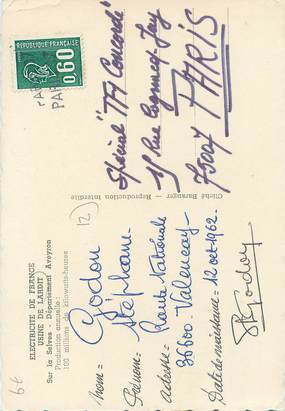 ELECTRICITE DE FRANCE
USINE DE LARDIT
Sur la Selves - Département Aveyron
Production annuelle :
100 millions kilowatts-heures
12
Nom = Godon
Prénom = Stéphane
Adresse = Route Nationale
36600 - Valencay
Date de naissance = 12 oct-1962
SGodon
Cliché Baranger — Reproduction Interdite
REPUBLIQUE FRANÇAISE
0,60
PAR
Spécial "TF1 Concorde"
15 Rue Cognacq-Jay
75007 PARIS
6€